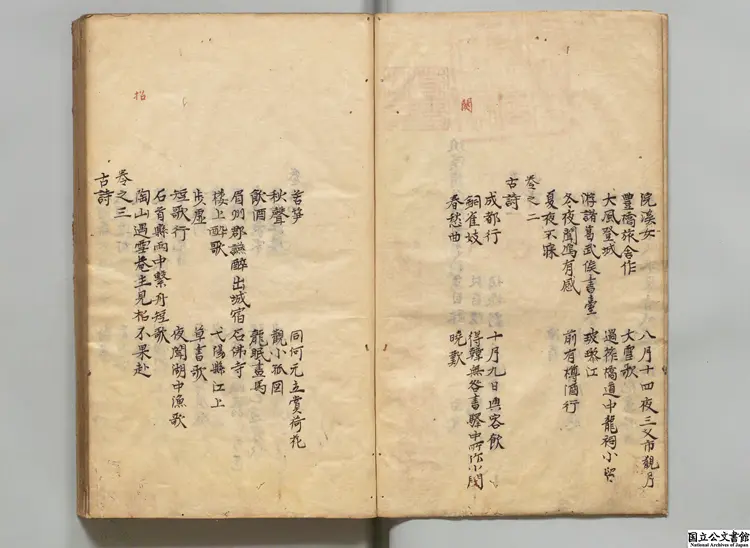 浣溪女 八月十四夜三叉市觀月
豊橋旅舎作 大雪歌
大風登城 過 橋道中龍祠小留
游諸葛武侯書臺 玻瓈江
冬夜聞鴈有感 前有樽酒行
夏夜不寐
巻之二
古詩
成都行 十月九日與客飲
銅雀妓 得韓無咎書 中所作小闋
春愁曲 晩歎
閣
苦筍 同何元立賞荷花
秋聲 觀小孤図
飲酒 龍眠畫馬
眉州郡讌酔出城宿石佛寺
樓上醉歌 弋陽縣江上
歩虚 草書歌
短歌行 夜聞湖中漁歌
石首縣雨中繋舟短歌
陶山遇雪菴主見招不果赴
巻之三
古詩
招
国立公文書館
National Archives of Japan